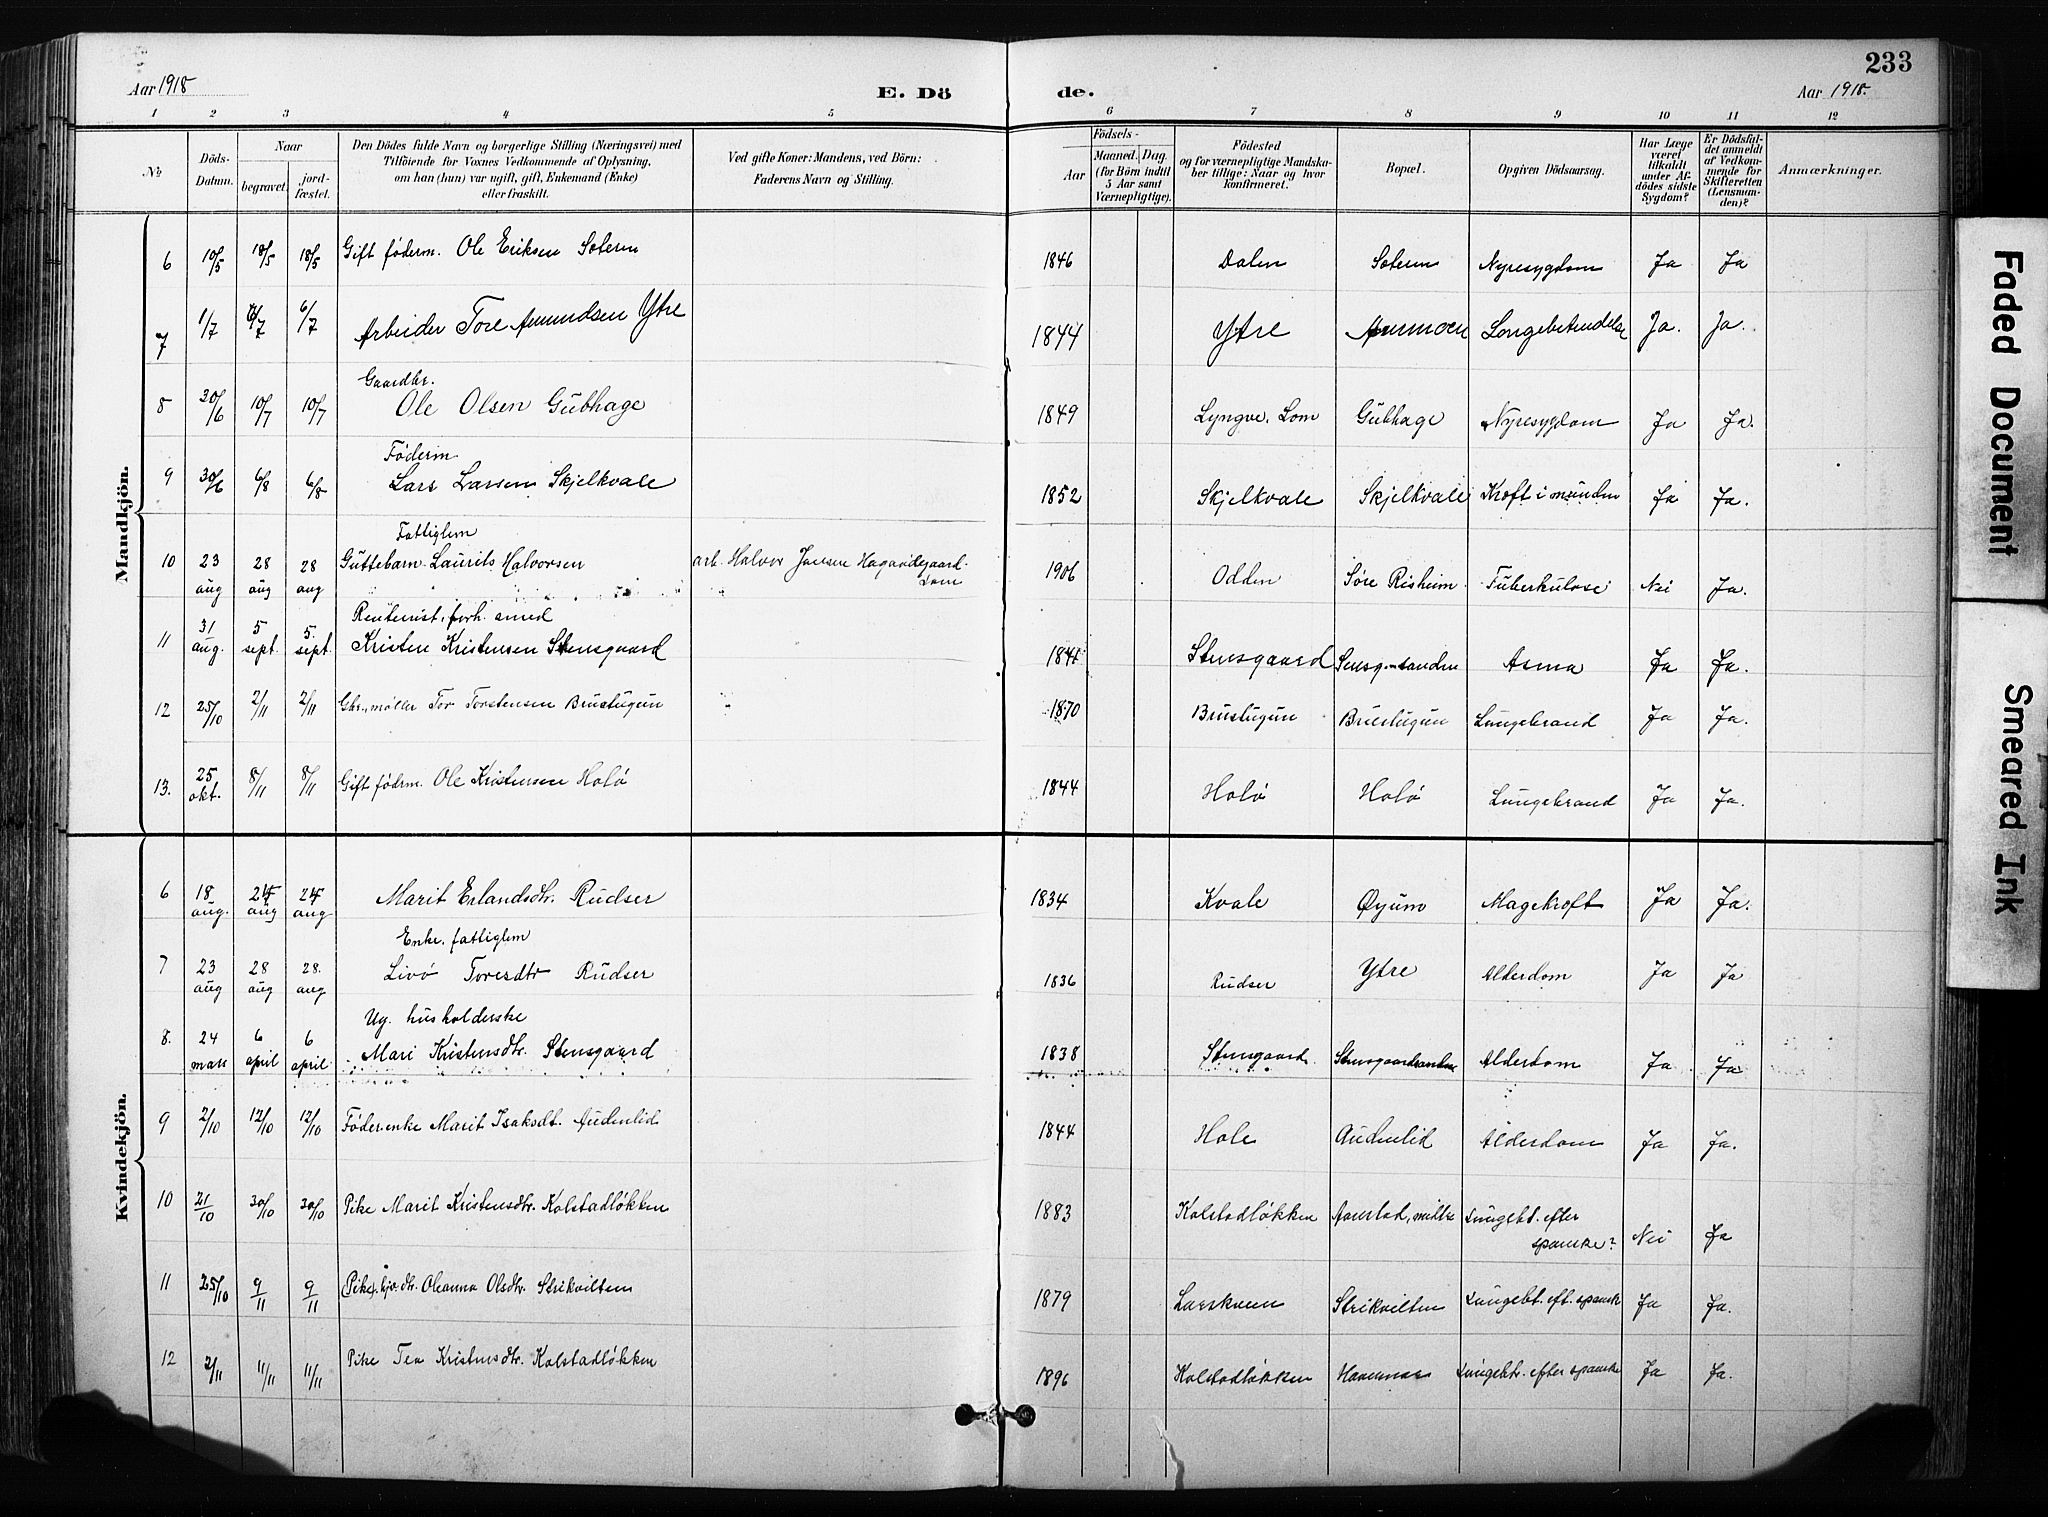 233
Aar 1918
E. Dö
de.
Aar 1918.
1 2 3 4 5 6 7 8 9 10 11 12
No
Döds-
Datum.
Naar
begravet.
jord-
fæstet.
Den Dödes fulde Navn og borgerlige Stilling (Næringsvei) med
Tilföiende for Voxnes Vedkommende af Oplysning,
om han (hun) var ugift, gift, Enkemand (Enke)
eller fraskilt.
Ved gifte Koner: Mandens, ved Börn:
Faderens Navn og Stilling.
Födsels-
Aar
Maaned.
Dag.
(for Börn indtil
5 Aar samt
Værnepligtige).
Födested
og for værnepligtige Mandska-
ber tillige: Naar og hvor
konfirmeret.
Bopæl.
Opgiven Dödsaarsag.
Har Læge
været
tilkaldt
under Af-
dödes sidste
Sygdom?
Er Dödsfal-
det anmeldt
af Vedkom-
mende for
Skifteretten
(Lensman-
den)?
Anmærkninger.
Mandkjön.
6 10/5 18/5 18/5 Gift føderm. Ole Eriksen Sotern 1846 Dalen Sotern Nyresygdom Ja Ja
7 1/7 6/7 6/7 Arbeider Tore Amundsen Ytre 1844 Ytre Aanmoen Longebetendelse Ja. Ja.
Gaardbr.
8 30/6 10/7 10/7 Ole Olsen Gubhage 1849 Lyngve. Lom Gubhage Nyresygdom Ja Ja.
Føderm.
9 30/6 6/8 6/8 Lars Larsen Skjelkvale 1852 Skjelkvale Skjelkvale Kræft i munden Ja Ja.
Fattiglem
10 23 aug 28 aug 28 aug Guttebarn Laurits Halvorsen arb. Halvor Jansen 1906 Odden Søre Risheim Tuberkulose Nei Ja.
Lom
Rentenist, forh. smed
11 31 aug. 5 sept. 5. sept. Kristen Kristensen Stensgaard 1841 Stensgaard Asma Ja Ja.
12 25/10 2/11 2/11 Gbr., møller Tor Torstensen Brustugun 1870 Brustugun Brustugun Lungebrand Ja Ja.
13. 25 okt. 8/11 8/11 Gift føderm. Ole Kristensen Holø 1844 Holø Holø Lungebrand Ja Ja.
Kvindekjön.
6 18 aug. 24 aug 24 aug Marit Erlandsdtr. Rudser 1834 Kvale Øyum Magekræft Ja Ja.
Enke. fattiglem
7 23 aug 28 aug 28. aug Livø Toresdtr Rudser 1836 Rudser Ytre Alderdom Ja Ja
Ug. husholderske
8. 24 mars 6 april 6 april Mari Kristensdtr. Stensgaard 1838 Stensgaard Stensgaardsanden Alderdom Ja Ja
9 2/10 12/10 12/10 Føder.enke Marit Isaksdt. Audenlid 1844 Hole Audenlid Alderdom Ja Ja.
10 21/10 30/10 30/10 Pike Marit Kristensdtr. Kolstadløkken 1883 Kolstadløkken Aanstad, midtre Lungebt. efter
spanske? Nei Ja
11 25/10 9/11 9/11 (Pike). Oleanna Olsdtr. Strikvilten 1879 Strikvilten Lungebt. eft. spanske Ja Ja.
12 2/11 11/11 11/11 Pike Tea Kristensdtr. Kolstadløkken 1896 Kolstadløkken Lungebtr. efter spanske Ja Ja.
Faded Document
Smeared Ink